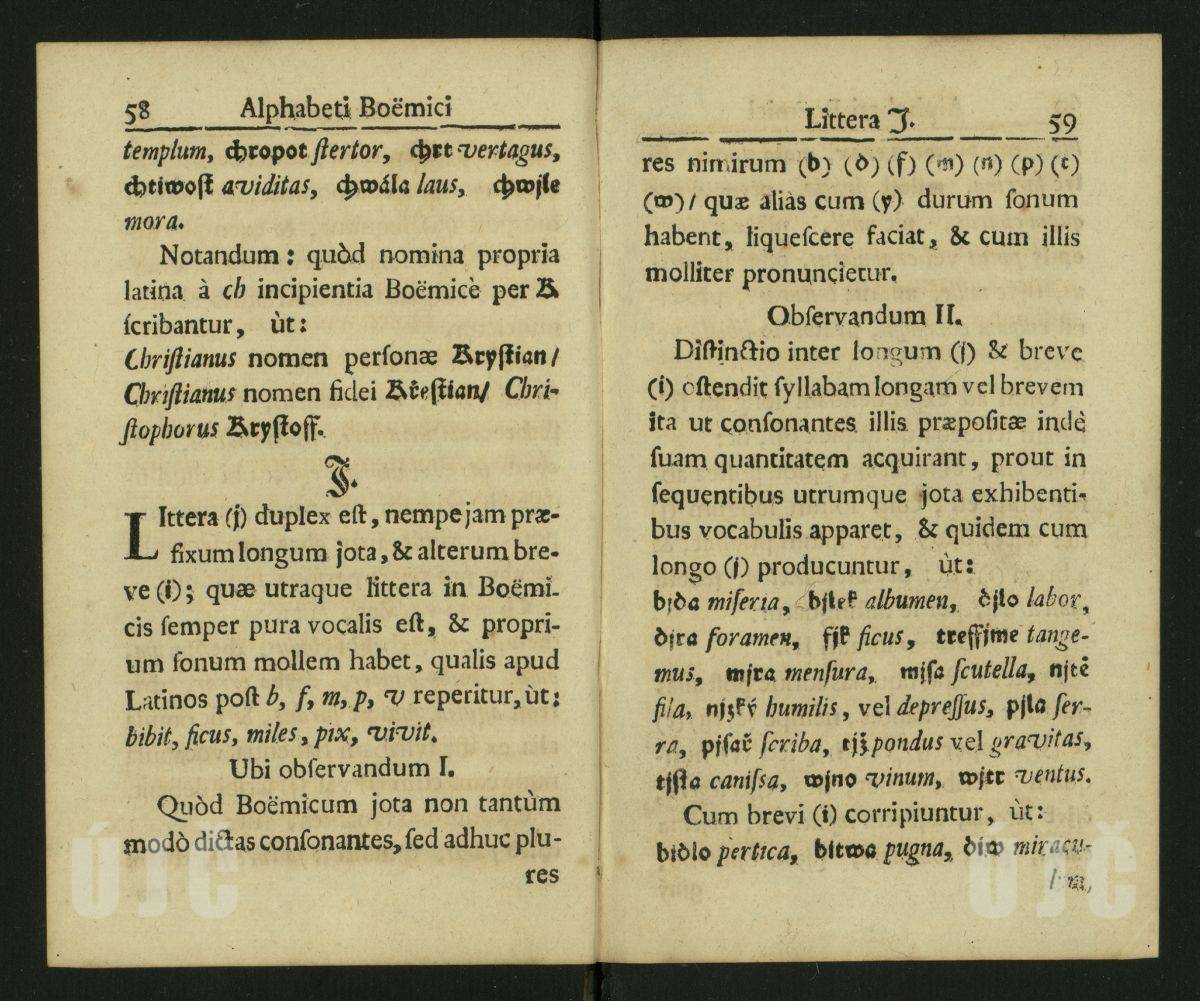 58 Alphabeti Boëmici
templum, chropot ſtertor, chrt vertagus,
chtiwoſt aviditas, chwála laus, chwjle
mora.
Notandum: quòd nomina propria
latina à ch incipientia Boëmicè per K
ſcribantur, ùt:
Chriſtianus nomen perſonæ Kryſtian/
Chriſtianus nomen fidei Křeſtian/ Chri-
ſtophorus Kryſtoff.
J.
LIttera (j) duplex eſt, nempe jam præ-
fixum longum jota, & alterum bre-
ve (i); quæ utraque littera in Boëmi-
cis ſemper pura vocalis eſt, & propri-
um ſonum mollem habet, qualis apud
Latinos poſt b, f, m, p, v reperitur, ùt:
bibit, ficus, miles, pix, vivit.
Ubi obſervandum I.
Quòd Boëmicum jota non tantùm
modò dictas conſonantes, ſed adhuc plu-
res
Littera J. 59
res nimirum (b) (d) (f) (m) (n) (p) (t)
(w)/ quæ aliàs cum (y) durum ſonum
habent, liqueſcere faciat, & cum illis
molliter pronuncietur.
Obſervandum II.
Diſtinctio inter longum (j) & breve
(i) oſtendit ſyllabam longam vel brevem
ita ut conſonantes illis præpoſitæ indè
ſuam quantitatem acquirant, prout in
ſequentibus utrumque jota exhibenti-
bus vocabulis apparet, & quidem cum
longo (j) producuntur, ùt:
bjda miſeria, bjlek albumen, djlo labor,
djra foramen, fjk ficus, treffjme tange-
mus, mjra menſura, mjſa ſcutella, njtě
fila, njzký humilis, vel depreſſus, pjla ſer-
ra, pjſař ſcriba, tjž pondus vel gravitas,
tjſta caniſsa, wjno vinum, wjtr ventus.
Cum brevi (i) corripiuntur, ùt:
bidlo pertica, bitwa pugna, diw miracu-
lum,
ÚJČ
ÚJČ